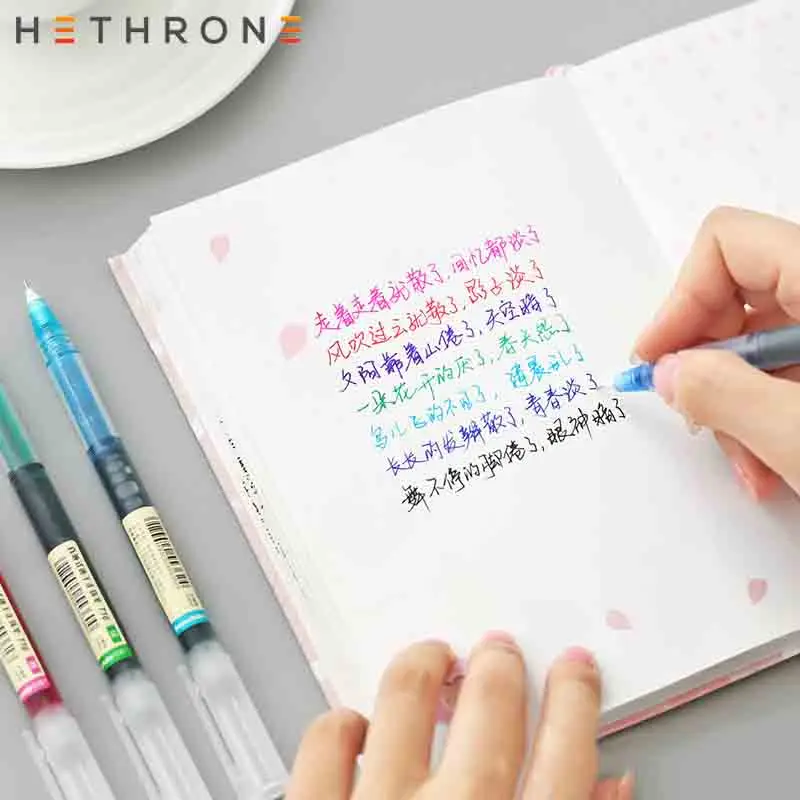 HETHRONE
走着走着就散了,回忆都淡了
风吹过云就散了,路古淡了
夕阳靠着山倦了,天空暗了
一朵花开的厌了,春天怨了
鸟儿飞的不见了,清晨乱了
长长的发辫散了,青春淡了
舞不停的脚倦了,眼神暗了